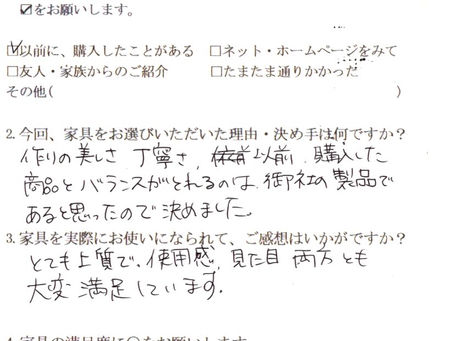 ☑をお願いします。
☑以前に、購入したことがある　□ネット・ホームページをみて
□友人・家族からのご紹介　□たまたま通りかかった
その他(　)
2.今回、家具をお選びいただいた理由・決め手は何ですか？
作りの美しさ 丁寧さ、以前 購入した
商品とバランスがとれるのは、御社の製品で
あると思ったので決めました。
3.家具を実際にお使いになられて、ご感想はいかがですか？
とても上質で、使用感、見た目 両方とも
大変 満足しています。